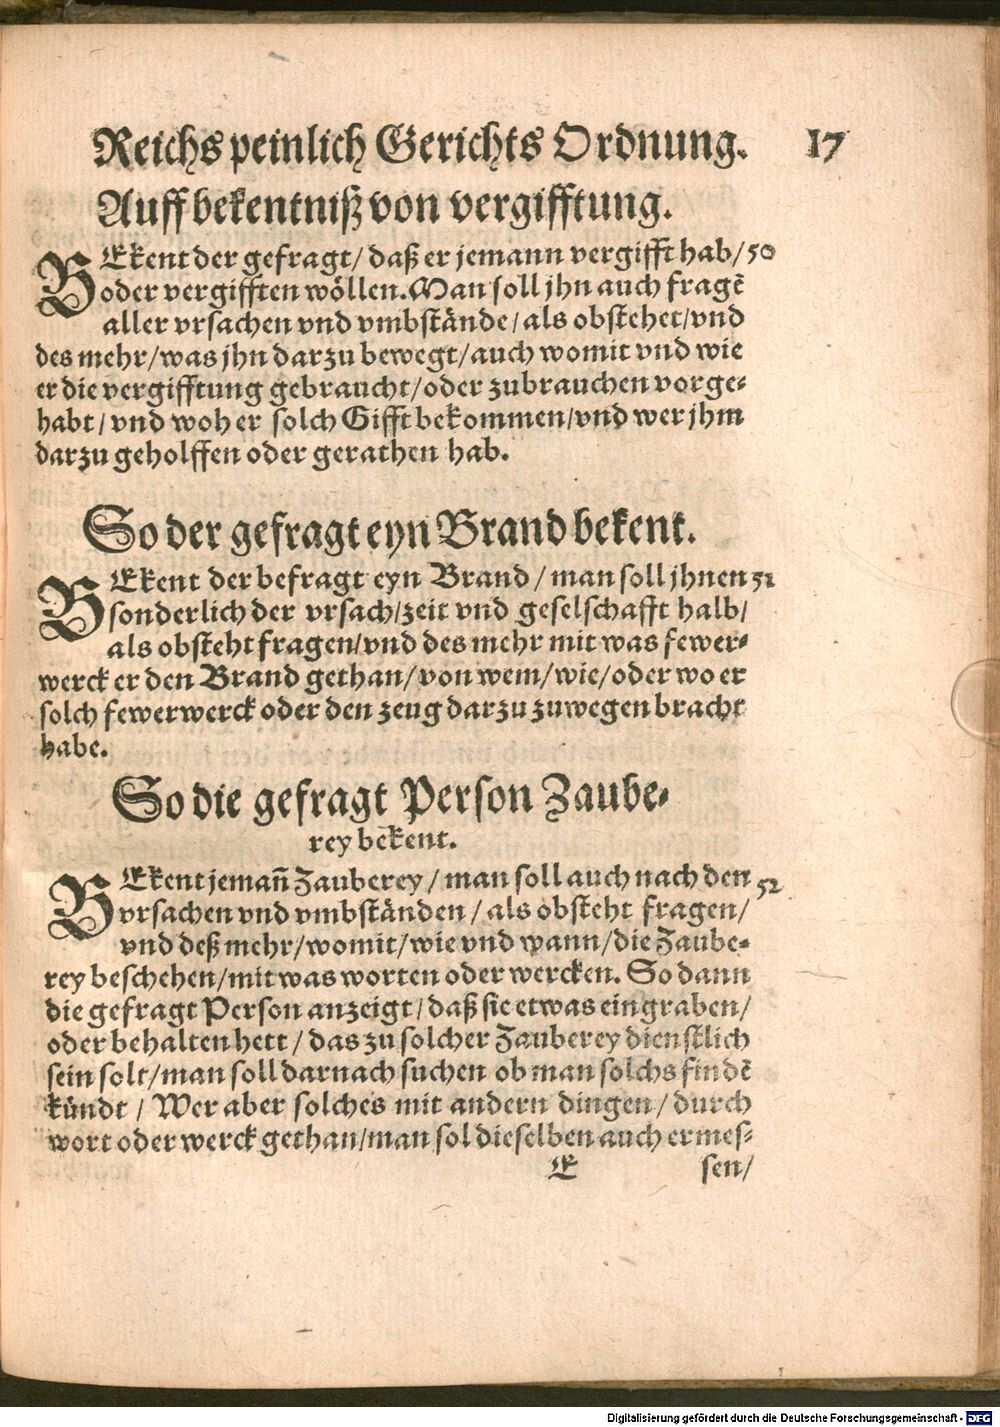 Reichs peinlich Gerichts Ordnung. 17
Auff bekentniß von vergifftung.
BEkent der gefragt/ daß er jemann vergifft hab/ 50
oder vergifften wöllen. Man soll jhn auch fragē
aller vrsachen vnd vmbstände/ als obstehet/ vnd
des mehr/ was jhn darzu bewegt/ auch womit vnd wie
er die vergifftung gebraucht/ oder zubrauchen vorge-
habt/ vnd woh er solch Gifft bekommen/ vnd wer jhm
darzu geholffen oder gerathen hab.
So der gefragt eyn Brand bekent.
BEkent der befragt eyn Brand/ man soll jhnen 51
sonderlich der vrsach/ zeit vnd geselschafft halb/
als obsteht fragen/ vnd des mehr mit was fewer-
werck er den Brand gethan/ von wem/ wie/ oder wo er
solch fewerwerck oder den zeug darzu zuwegen bracht
habe.
So die gefragt Person Zaube-
rey bekent.
BEkent jemañ Zauberey/ man soll auch nach den 52
vrsachen vnd vmbständen/ als obsteht fragen/
vnd deß mehr/ womit/ wie vnd wann/ die Zaube-
rey beschehen/ mit was worten oder wercken. So dann
die gefragt Person anzeigt/ daß sie etwas eingraben/
oder behalten hett/ das zu solcher Zauberey dienstlich
sein solt/ man soll darnach suchen ob man solchs findē
kündt/ Wer aber solches mit andern dingen/ durch
wort oder werck gethan/ man sol dieselben auch ermes-
E sen/
Digitalisierung gefördert durch die Deutsche Forschungsgemeinschaft - DFG